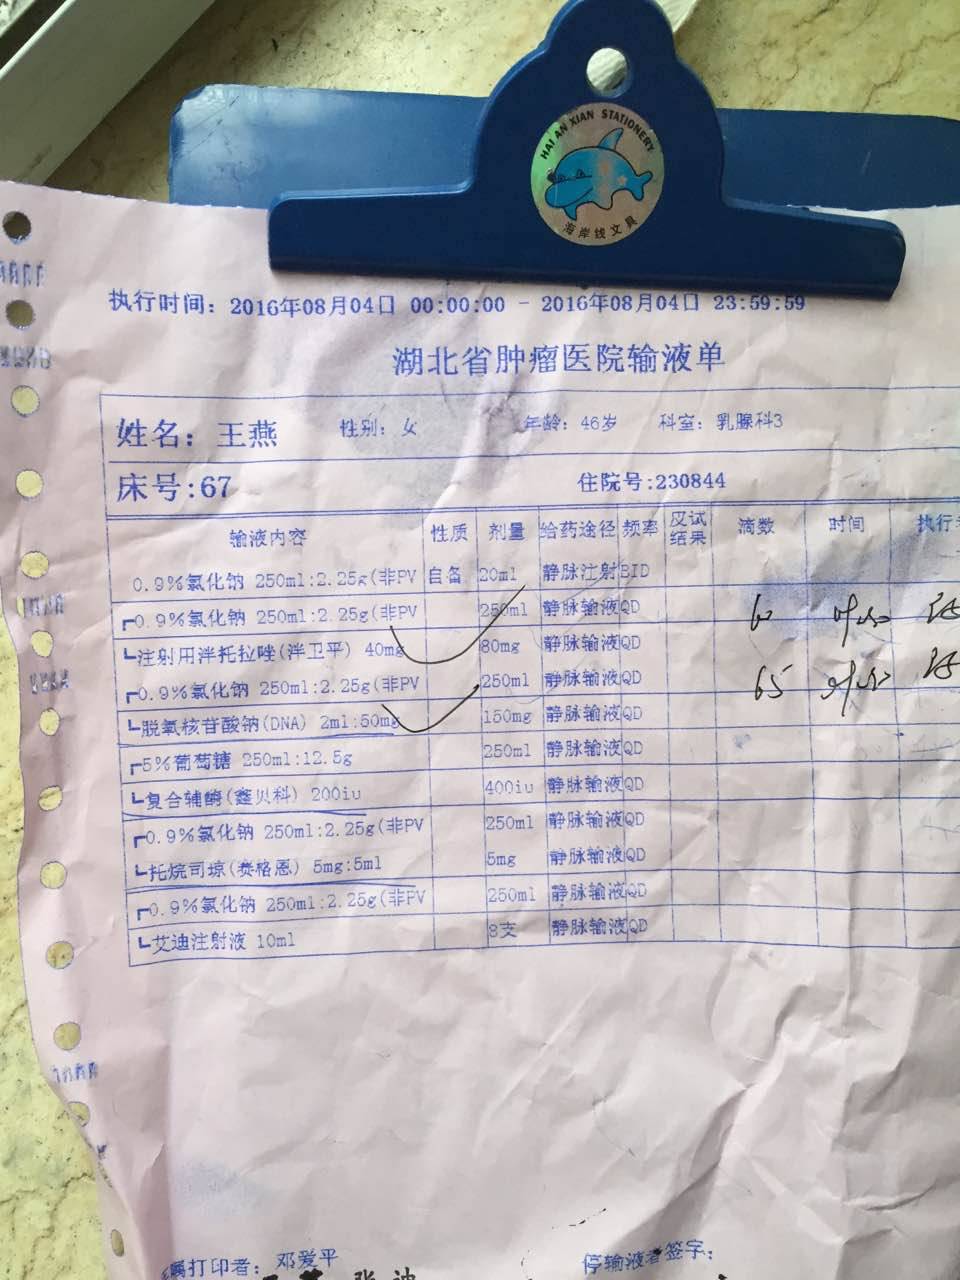 HAI AN XIAN STATIONERY
海岸线文具
执行时间: 2016年08月04日 00:00:00 - 2016年08月04日 23:59:59
湖北省肿瘤医院输液单
姓名: 王燕 性别: 女 年龄: 46岁 科室: 乳腺科3
床号:67 住院号:230844
输液内容 性质 剂量 给药途径 频率 皮试结果 滴数 时间 执行
0.9%氯化钠 250ml:2.25g(非PV 自备 20ml 静脉注射 BID
┏0.9%氯化钠 250ml:2.25g(非PV 250ml 静脉输液 QD 60
┗注射用泮托拉唑(泮卫平) 40mg 80mg 静脉输液 QD
┏0.9%氯化钠 250ml:2.25g(非PV 250ml 静脉输液 QD 65
┗脱氧核苷酸钠(DNA) 2ml:50mg 150mg 静脉输液 QD
┏5%葡萄糖 250ml:12.5g 250ml 静脉输液 QD
┗复合辅酶(鑫贝科) 200iu 400iu 静脉输液 QD
┏0.9%氯化钠 250ml:2.25g(非PV 250ml 静脉输液 QD
┗托烷司琼(赛格恩) 5mg:5ml 5mg 静脉输液 QD
┏0.9%氯化钠 250ml:2.25g(非PV 250ml 静脉输液 QD
┗艾迪注射液 10ml 8支 静脉输液 QD
嘱打印者: 邓爱平 停输液者签字: